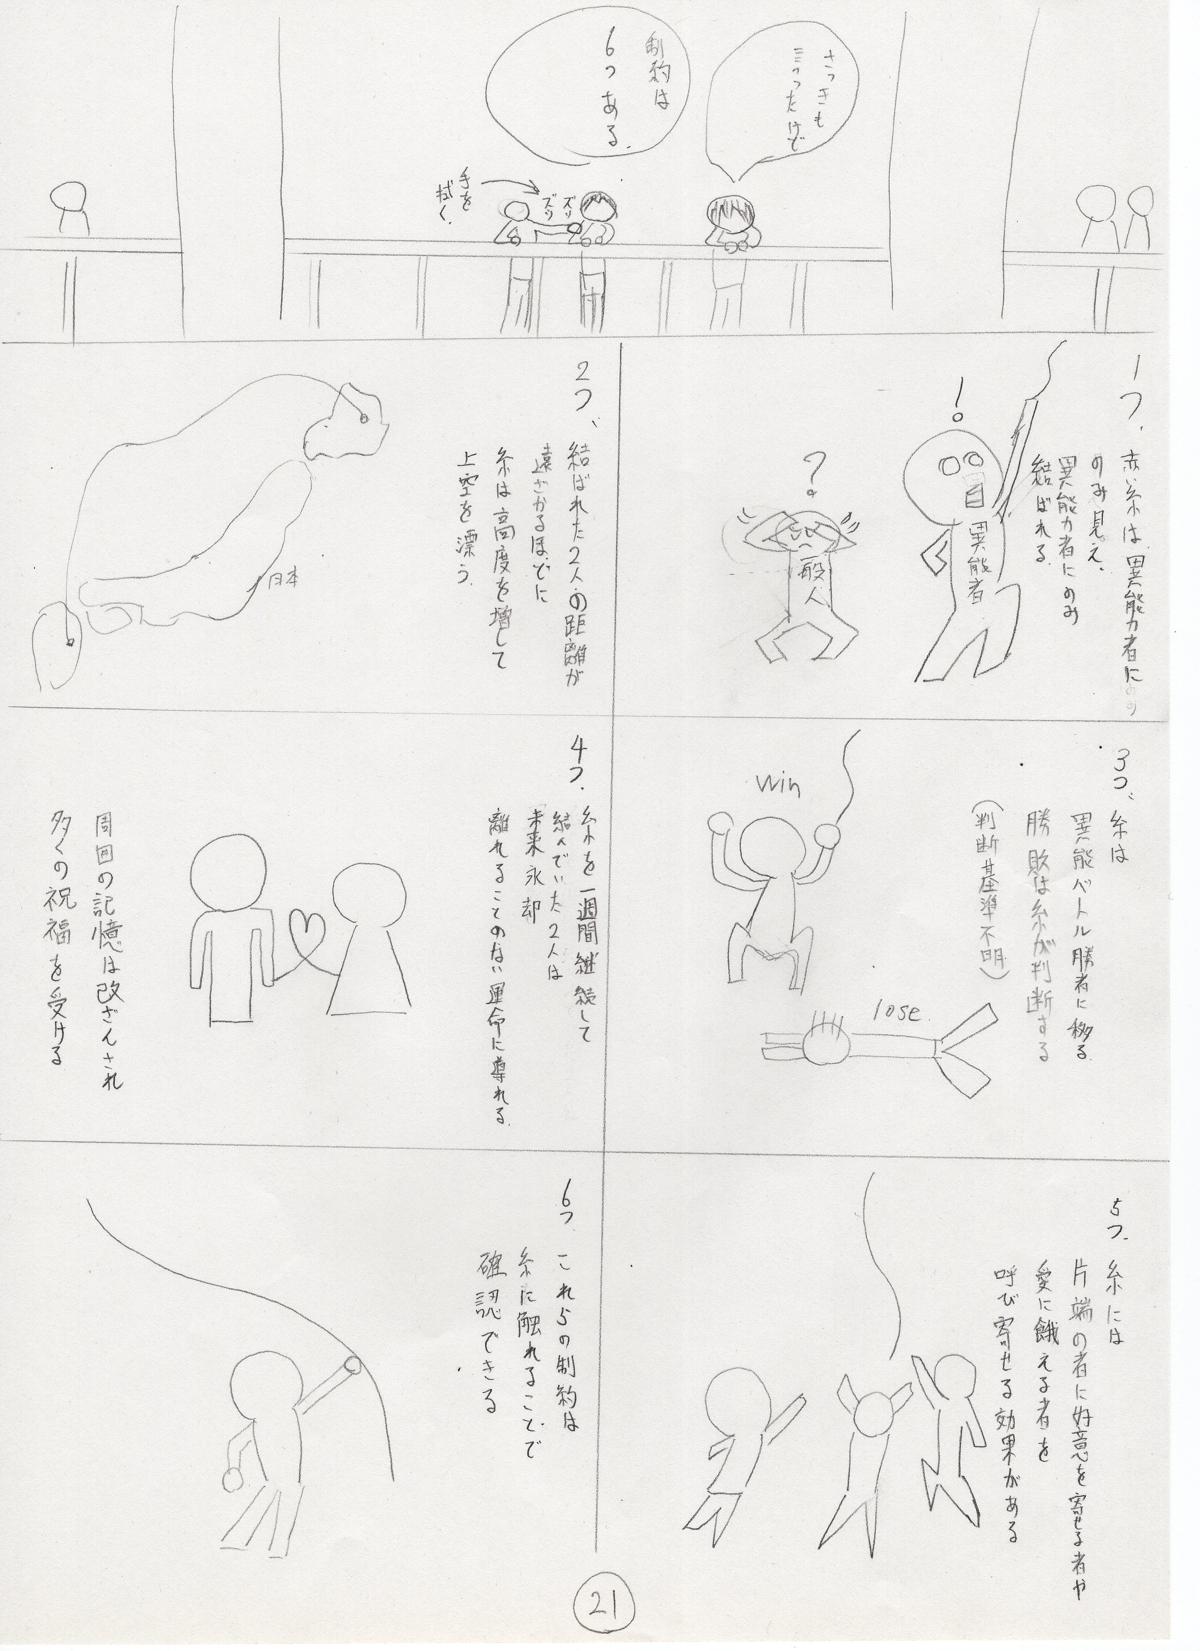 さっきも
言ったけど
制約は
6つある.
手を
拭く.
ズリ
ズリ
1つ、
赤い糸は異能力者に
のみ見え、
異能力者にのみ
結ばれる
!
異能者
?
一般人
2つ、
結ばれた2人の距離が
遠ざかるほどに
糸は高度を増して
上空を漂う.
日本
3つ、糸は
異能バトル勝者に移る
勝敗は糸が判断する
(判断基準不明)
win
lose
4つ.
糸を一週間継続して
結んでいた2人は
未来永却
離れることのない運命に導れる.
周囲の記憶は改ざんされ
多くの祝福を受ける
5つ.糸には
片端の者に好意を寄せる者や
愛に餓える者を
呼び寄せる効果がある
6つ.
これらの制約は
糸に触れることで
確認できる
21